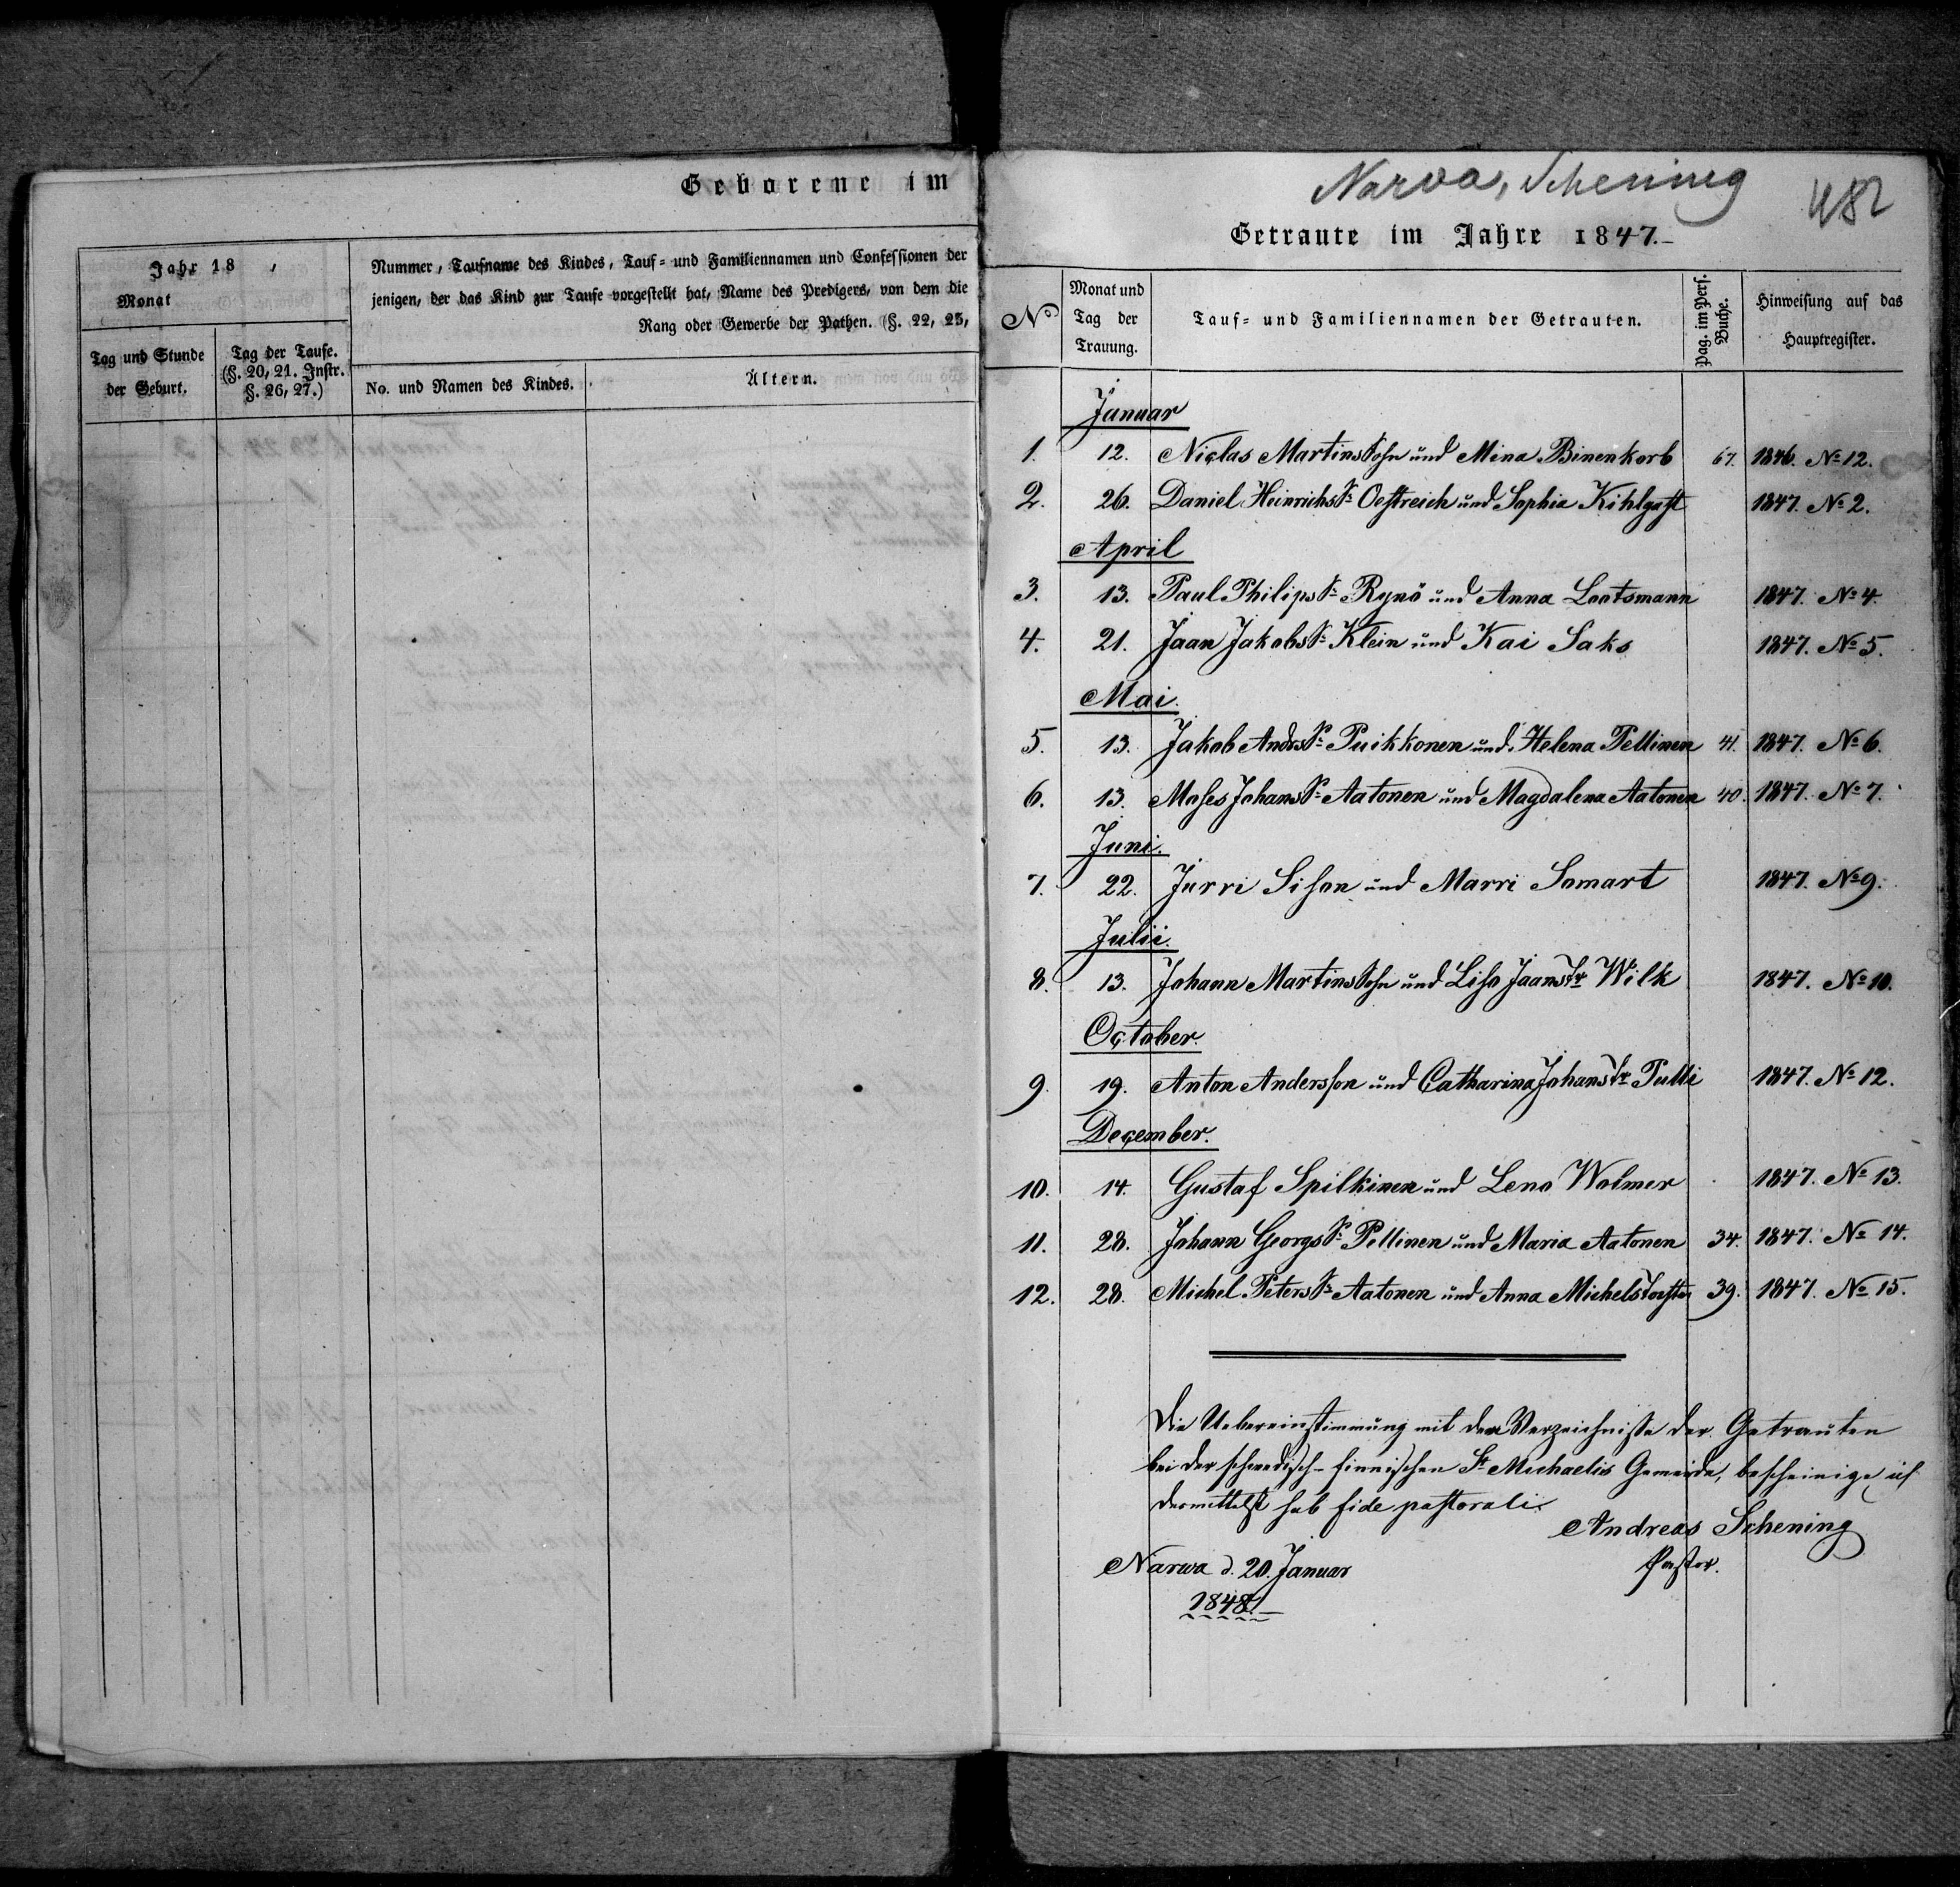 Geborene im
Jahr 18 ,
Monat
Nummer, Taufname des Kindes, Tauf- und Familiennamen und Confessionen der
jenigen, der das Kind zur Taufe vorgestellt hat, Name des Predigers, von dem die
Rang oder Gewerbe der Pathen. (§. 22, 23,
Tag und Stunde
der Geburt.
Tag der Taufe.
(§. 20, 21. Instr.
§. 26, 27.)
No. und Namen des Kindes.
Ältern.
Narva, Schening
482
Getraute im Jahre 1847.
No
Monat und
Tag der
Trauung.
Tauf- und Familiennamen der Getrauten.
Pag. im Pers.
Buche.
Hinweisung auf das
Hauptregister.
Januar
1. 12. Niclas Martins Sohn und Mina Binenkorb 67. 1846. No 12.
2. 26. Daniel Heinrichs S. Oestreich und Sophia Kihlgast 1847. No 2.
April
3. 13. Paul Philips S. Rynö und Anna Lootsmann 1847. No 4.
4. 21. Jaan Jakobs S. Klein und Kai Saks 1847. No 5.
Mai.
5. 13. Jakob Andrs S. Puikkonen und Helena Pellinen 41. 1847. No 6.
6. 13. Moses Johans S. Aatonen und Magdalena Aatonen 40. 1847. No 7.
Juni.
7. 22. Jurri Sison und Marri Somart 1847. No 9.
Julii.
8. 13. Johann Martins Sohn und Liso Jaans Tr Wilk 1847. No 10.
October.
9. 19. Anton Andersson und Catharina Johans Tr Pulli 1847. No 12.
December.
10. 14. Gustaf Spilkinen und Leno Wolmer 1847. No 13.
11. 28. Johann Georgs S. Pellinen und Maria Aatonen 34. 1847. No 14.
12. 28. Michel Peters S. Aatonen und Anna Michels Tochter 39. 1847. No 15.
Die Uebereinstimmung mit dem Verzeichnisse der Getrauten
bei der schwedisch-finnischen St Michaelis Gemeinde, bescheinige ich
dermittelst sub fide pastorali.
Andreas Schening
Pastor.
Narwa d. 20. Januar
1848.